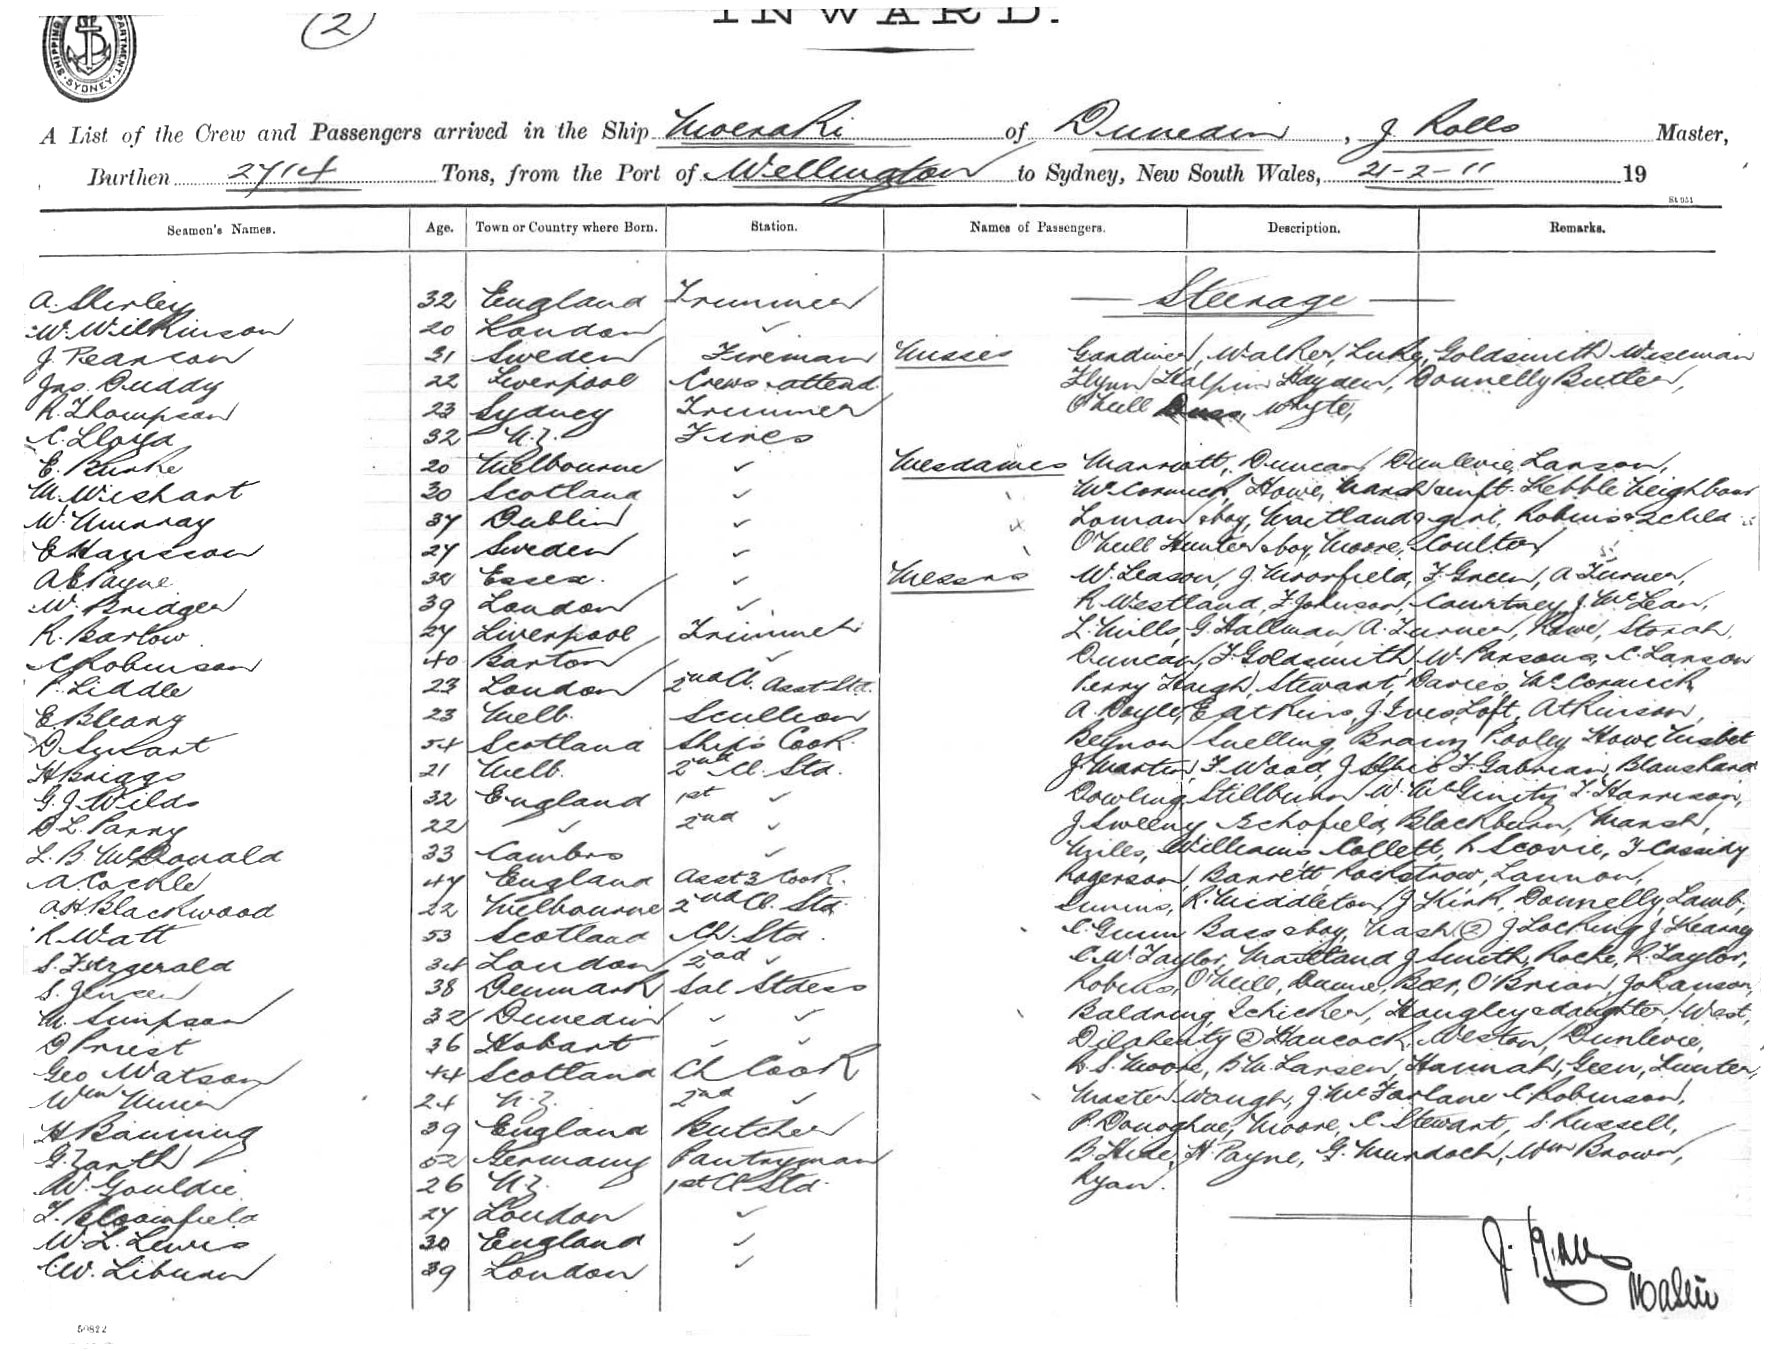 SHIPPING DEPARTMENT. SYDNEY
2
INWARD.
A List of the Crew and Passengers arrived in the Ship Moeraki of Dunedin, J Rolls Master,
Burthen 2714 Tons, from the Port of Wellington to Sydney, New South Wales, 21-2-11 19
Seamen's Names. Age. Town or Country where Born. Station. Names of Passengers. Description. Remarks.
Steerage
A. Shirley 32 England Trimmer
W. Wilkinson 20 London ✓
J. Pearson 31 Sweden Fireman
Jas. Duddy 22 Liverpool Crews attend
R. Thompson 23 Sydney Trimmer
C. Lloyd 32 N.Z. Fires
E. Burke 20 Melbourne ✓
M. Wishart 30 Scotland ✓
W. Murray 37 Dublin ✓
E Hansson 27 Sweden ✓
A E Payne 32 Essex. ✓
W. Bridger 39 London ✓
R. Barlow 27 Liverpool Trimmer
C Robinson 40 Barton ✓
P. Liddle 23 London 2nd Cl. Asst Std.
E 23 Melb. Scullion
D 54 Scotland Ship's Cook.
H Briggs 21 Melb. 2nd Cl. Std.
G. J. Wilds 32 England 1st ✓
D L. Parry 22 ✓ 2nd ✓
L. B McDonald 33 ✓
A. Cockle 47 England Asst 3 Cook.
A. H Blackwood 22 Melbourne 2nd Cl. Std.
R. Watt 53 Scotland Ch. Std.
S. Fitzgerald 34 London 2nd ✓
S. Jensen 38 Denmark Sal Stdess
M. Simpson 32 Dunedin ✓ ✓
D Priest 36 Hobart ✓ ✓
Geo Watson 44 Scotland Ch Cook
Wm 24 N.Z. 2nd ✓
H Banning 39 England Butcher
G. Zarth 52 Germany Pantryman
W. Gouldie 26 N.Z. 1st Cl Std.
F. Bloomfield 27 London ✓
W. L. Lewis 30 England ✓
C. W. Liburn 39 London ✓
Misses Gardiner, Walker, Luke, Goldsmith Wiseman
Flynn Halpin Hayden, Donnelly Butler,
O'Neill Whyte,
Mesdames Marriott, Duncan, Dunlevie, Larson,
McCormick, Howe, Kebble Neighbour
Loman & boy, Maitland & girl, Robins & 2 child
O'Neill Hunter & boy, Moore, Coulter
Messrs W. Leason, J Moorfield, F. Green, A Turner,
R. Westland, F Johnson, Courtney, J. McLean,
L. Mills, G. Hallman, A. Turner, Howe, Storah,
Duncan, F. Goldsmith W. Parsons, C. Larson
Perry Haigh, Stewart, Davies, McCormick
A. Doyle, E Atkins, J Ives, Loft, Atkinson,
Beynon Snelling, Brown Pooley Howe Nisbet
J. Martin, F. Wood, J F. Gabrian, Blanshard
Dowling, Stillburn W. McGinity F. Harrison,
J Sweeny Schofield, Blackburn, Marsh,
Miles, Williams, Collett, R Scovie, F Cassidy
Rogerson, Barrett, Rockstrow, Lannon,
R. Middleton, J Kirk, Donnelly, Lamb,
C. Gunn Bass & boy, Nash (2) J Locking J. Kearney
C. W. Taylor, Maitland J Smith, Roche, R. Taylor,
Robins, O'Neill, Beer, O'Brian, Johanson,
Baldring Schicker, Hangley & daughter, West,
(2) Hancock, Weston, Dunlevie,
R. S. Moore, B. W. Larsen, Hannah, Geen, Hunter,
Master Waugh, J. McFarlane C Robinson,
P. Donoghue, Moore, C. Stewart, S. Russell,
B. Hide, H. Payne, G. Murdoch, Wm Brown,
Ryan.
J. Rolls
Master
50822